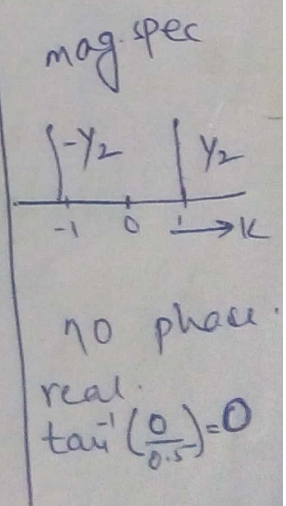 mag.spec
-1/2 1/2
-1 0 1 → K
no phase.
real.
tan⁻¹(0/0.5)=0